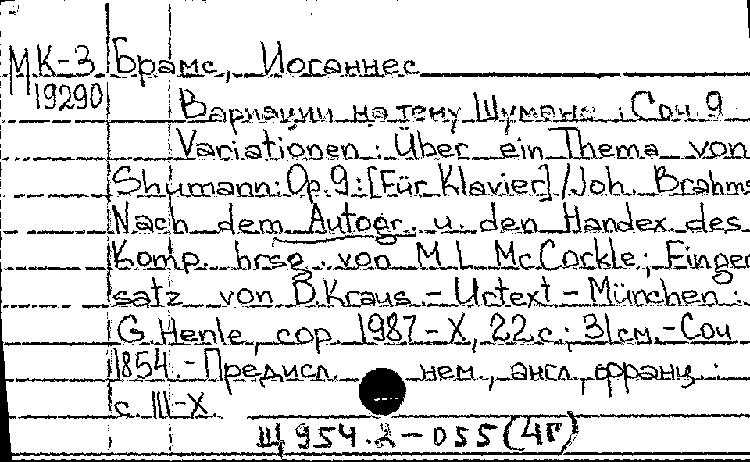 МК-3 Брамс, Иоганнес
19290
Вариации на тему Шумана : Соч. 9
Variationen : Über ein Thema von
Shumann : Op. 9 : [Für Klavier] / Joh. Brahms
Nach dem Autogr. u. den Handex. des
Komp. hrsg. von M L McCorkle; Finger
satz von D. Kraus - Urtext - München :
G. Henle, cop. 1987 - X, 22 с.; 31 см. - Соч
1854. - Предисл. нем., англ, франц. :
с. III-X
Щ 954.2-055 (4Г)